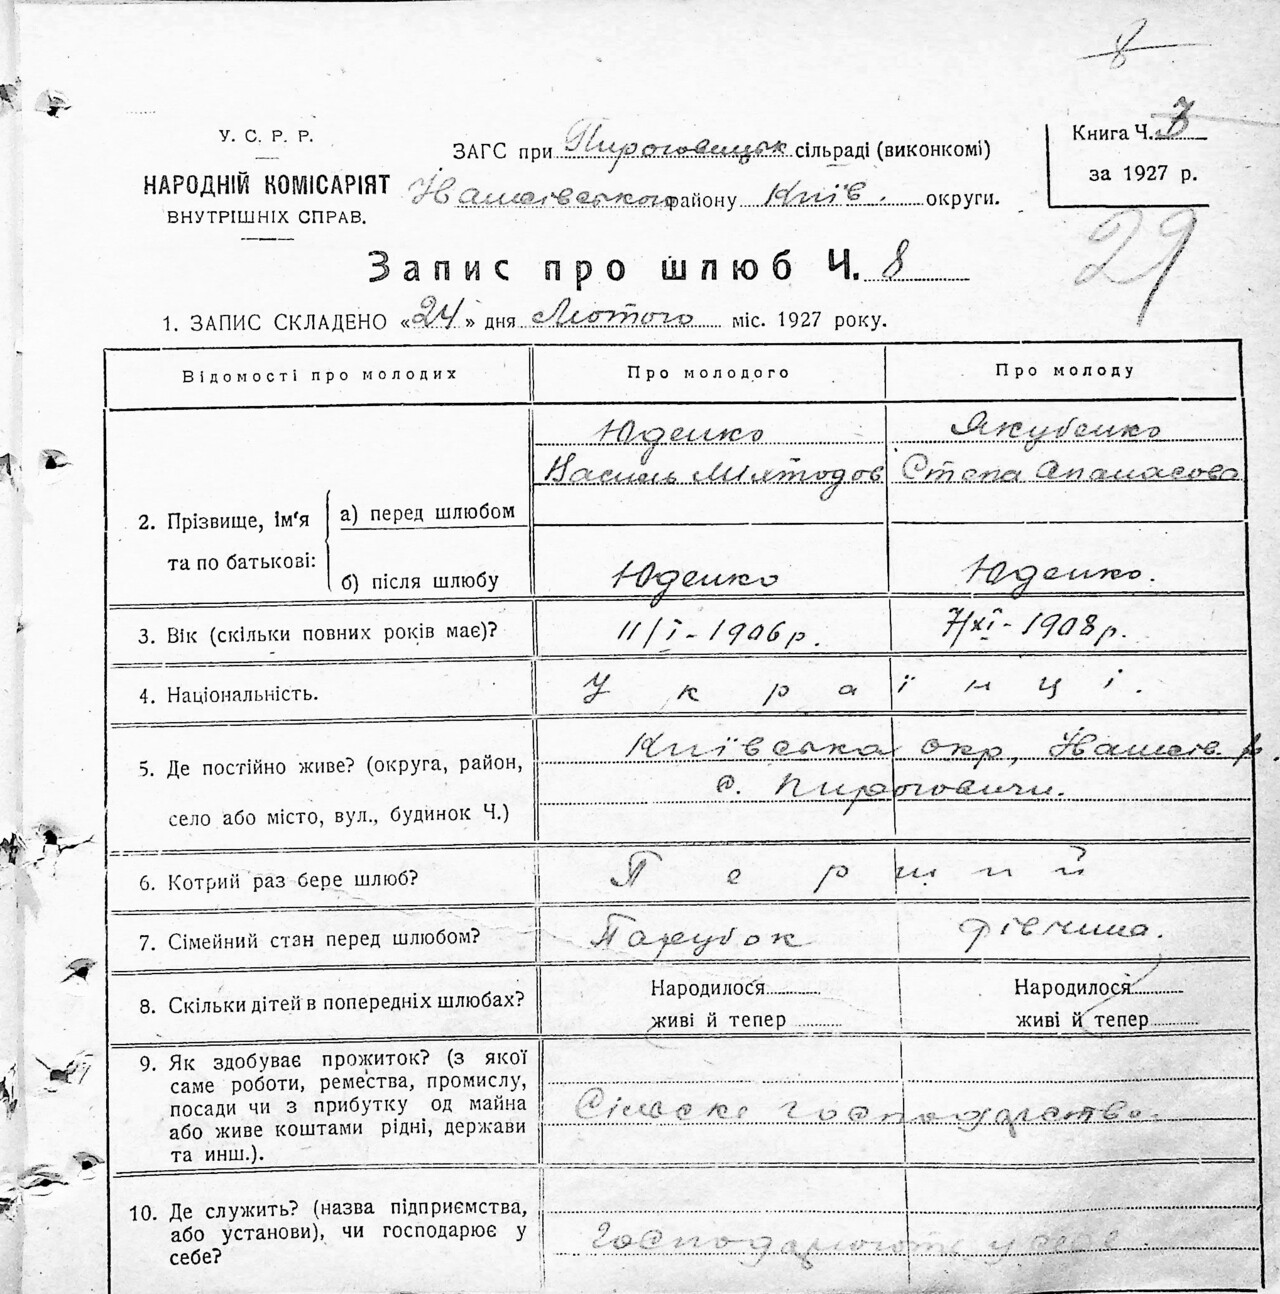 8
У. С. Р. Р.
НАРОДНІЙ КОМІСАРІЯТ
ВНУТРІШНІХ СПРАВ.
ЗАГС при Пироговицьк сільраді (виконкомі)
району Київ. округи.
Книга Ч.
за 1927 р.
29
Запис про шлюб Ч. 8
1. ЗАПИС СКЛАДЕНО «24» дня Лютого міс. 1927 року.
Відомості про молодих Про молодого Про молоду
Юденко Якубенко
Василь Степа Апанасова
2. Прізвище, ім'я та по батькові:
а) перед шлюбом
б) після шлюбу Юденко Юденко.
3. Вік (скільки повних років має)? 11/I-1906 р. 7/XI-1908 р.
4. Національність. Українці.
5. Де постійно живе? (округа, район, Київська окр,
село або місто, вул., будинок Ч.) с. Пироговичи.
6. Котрий раз бере шлюб? Перший
7. Сімейний стан перед шлюбом? Парубок дівчина.
8. Скільки дітей в попередніх шлюбах? Народилося Народилося
живі й тепер живі й тепер
9. Як здобуває прожиток? (з якої
саме роботи, ремества, промислу,
посади чи з прибутку од майна
або живе коштами рідні, держави
та инш.). Сільске господарство.
10. Де служить? (назва підприємства,
або установи), чи господарює у
себе? Господарюють у себе